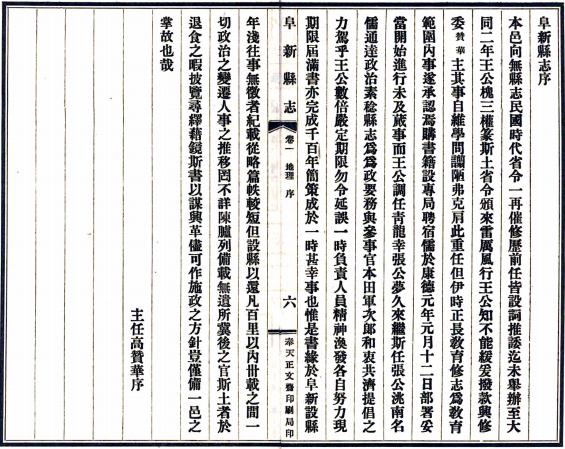 阜新縣志序
本邑向無縣志民國時代省令一再催修歷前任皆設詞推諉迄未舉辦至大
同二年王公槐三權篆斯土省令頒來雷厲風行王公知不能緩爰撥款興修
委贊華主其事自維學問譾陋弗克肩此重任但伊時正長敎育修志爲敎育
範圍內事遂承認焉購書籍設專局聘宿儒於康德元年元月十二日部署妥
當開始進行未及蕆事而王公調任青龍幸張公夢久來繼斯任張公洮南名
儒通達政治素稔縣志爲爲政要務與參事官本田軍次郎和衷共濟提倡之
力駕乎王公數倍嚴定期限勿令延誤一時負責人員精神渙發各自努力現
期限屆滿書亦完成千百年簡策成於一時甚幸事也惟是書緣於阜新設縣
阜新縣志
卷一 地理 序
六
奉天正文齋印刷局印
年淺往事無徵者紀載從略篇帙較短但設縣以還凡百里以內卅載之間一
切政治之變遷人事之推移罔不詳陳臚列備載無遺所冀後之官斯土者於
退食之暇披覽尋繹藉鏡斯書以謀興革儘可作施政之方針豈僅備一邑之
掌故也哉
主任高贊華序